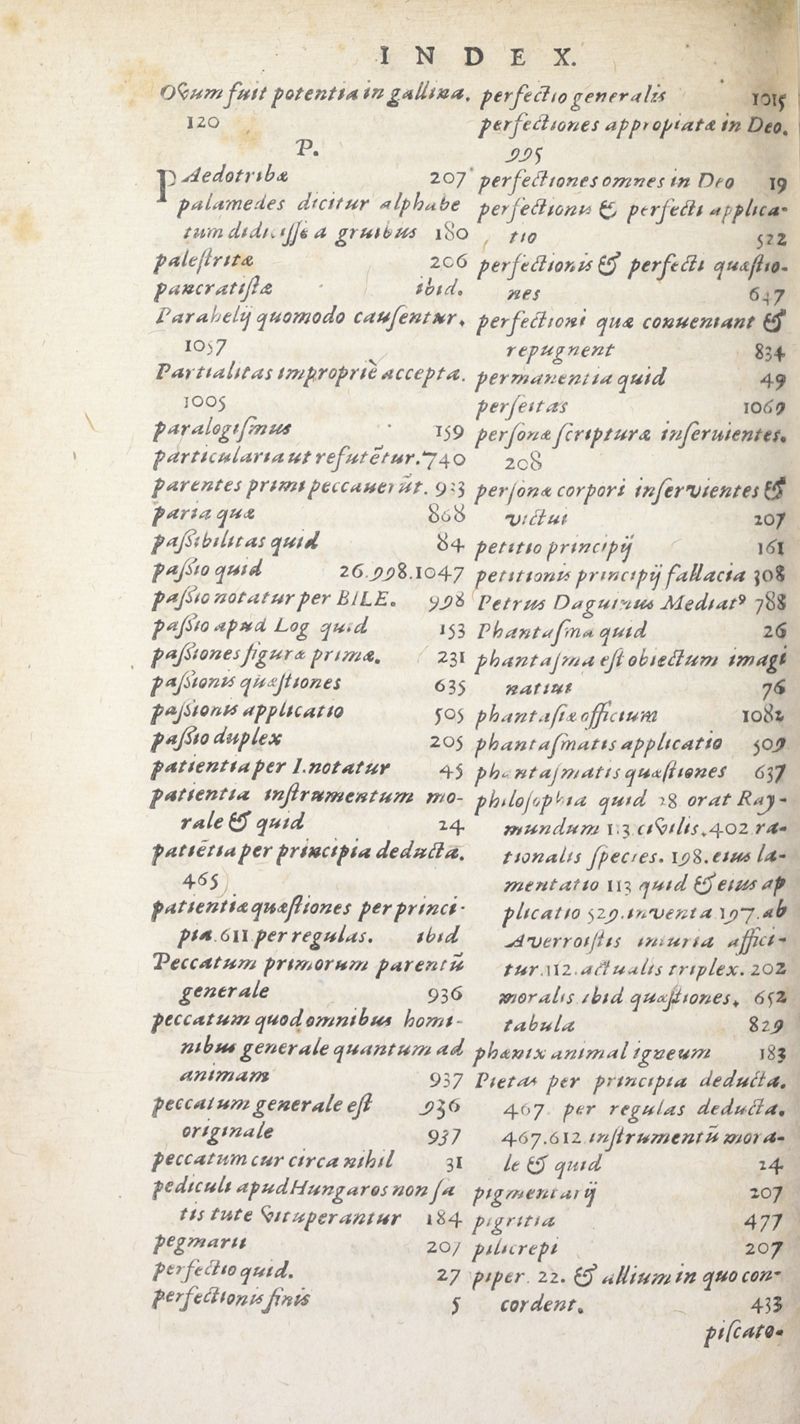 INDEX.
Ovum fuit potentia in gallina.
120
P.
PAedotribæ 207
palamedes dicitur alphabe
tum didicisse a gruibus 180
palestritæ 206
pancratistæ ibid.
Parahelij quomodo causentur.
1057
Partialitas improprie accepta.
1005
paralogismus 159
particularia ut refutētur. 740
parentes primi peccauerūt. 933
paria quæ 868
passibilitas quid 84
passio quid 26.998.1047
passio notatur per BILE. 998
passio apud Log quid 153
passiones figuræ primæ. 231
passionis quæstiones 635
passionis applicatio 505
passio duplex 205
patientia per I. notatur 45
patientia instrumentum mo-
rale & quid 24
patiētia per principia deducta.
465
patientiæ quæstiones per princi-
pia. 611 per regulas. ibid
Peccatum primorum parentū
generale 936
peccatum quod omnibus homi-
nibus generale quantum ad
animam 937
peccatum generale est 936
originale 937
peccatum cur circa nihil 31
pediculi apud Hungaros non sa
tis tute vituperantur 184
pegmarii 207
perfectio quid. 27
perfectionis finis 5
perfectio generalis 1015
perfectiones appropiatæ in Deo.
995
perfectiones omnes in Deo 19
perfectionis & perfecti applica-
tio 522
perfectionis & perfecti quæstio-
nes 647
perfectioni quæ conueniant &
repugnent 834
permanentia quid 49
perseitas 1069
personæ scripturæ inseruientes.
208
personæ corpori inservientes &
victui 207
petitio principij 161
petitionis principij fallacia 308
Petrus Daguinus Mediat⁹ 788
Phantasma quid 26
phantasma est obiectum imagi
natiui 76
phantasiæ officium 1082
phantasmatis applicatio 509
phantasmatis quæstiones 637
philosophia quid 28 orat Ray-
mundum 113 civilis. 402 ra-
tionalis species. 198. eius la-
mentatio 113 quid & eius ap
plicatio 529. inventa 197. ab
Averroistis iniuria affici-
tur. 112. actualis triplex. 202
moralis ibid quæstiones. 652
tabula 829
phænix animal igneum 183
Pietas per principia deducta.
467. per regulas deducta.
467.612 instrumentū mora-
le & quid 24
pigmentarij 207
pigritia 477
pilicrepi 207
piper. 22. & allium in quo con-
cordent. 433
piscato-